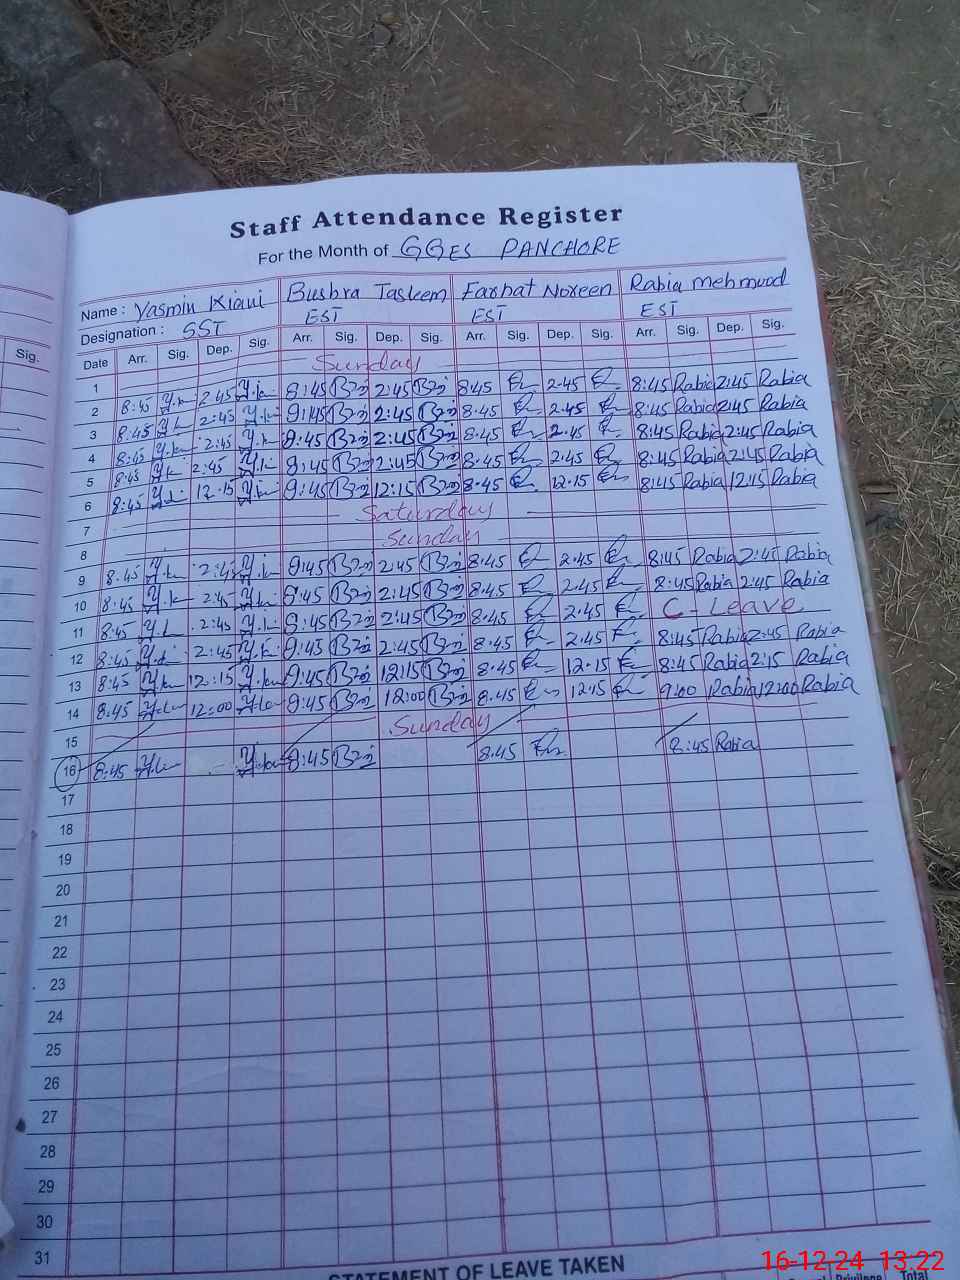 Staff Attendance Register
For the Month of GGES PANCHORE
Name : Yasmin Kiani Bushra Tasleem Farhat Noreen Rabia Mehmood
Designation : SST EST EST EST
Sig. Date Arr. Sig. Dep. Sig. Arr. Sig. Dep. Sig. Arr. Sig. Dep. Sig. Arr. Sig. Dep. Sig.
1 Sunday
2 8:45 Y.k 2:45 Y.k 8:45 2:45 8.45 2.45 8:45 Rabia 2:45 Rabia
3 8:45 Y.k 2:45 Y.k 8:45 2:45 8.45 2.45 8:45 Rabia 2:45 Rabia
4 8:45 Y.k 2:45 Y.k 8:45 2:45 8.45 2.45 8:45 Rabia 2:45 Rabia
5 8:45 Y.k 2:45 Y.k 8:45 2:45 8.45 2.45 8:45 Rabia 2:45 Rabia
6 8:45 Y.k 12:15 Y.k 8:45 12:15 8.45 12.15 8:45 Rabia 12:15 Rabia
7 Saturday
8 Sunday
9 8:45 Y.k 2:45 Y.k 8:45 2:45 8.45 2.45 8:45 Rabia 2:45 Rabia
10 8:45 Y.k 2:45 Y.k 8:45 2:45 8.45 2.45 8:45 Rabia 2:45 Rabia
11 8:45 Y.k 2:45 Y.k 8:45 2:45 8.45 2.45 C-Leave
12 8:45 Y.k 2:45 Y.k 8:45 2:45 8.45 2.45 8:45 Rabia 2:45 Rabia
13 8:45 Y.k 12:15 Y.k 8:45 12:15 8.45 12.15 8:45 Rabia 2:15 Rabia
14 8:45 Y.k 12:00 Y.k 8:45 12:00 8.45 12.15 9:00 Rabia 12:00 Rabia
15 Sunday
16 8:45 Y.k Y.k 8:45 8.45 8:45 Rabia
17
18
19
20
21
22
23
24
25
26
27
28
29
30
31
STATEMENT OF LEAVE TAKEN
Privilege Total
16-12-24 13:22